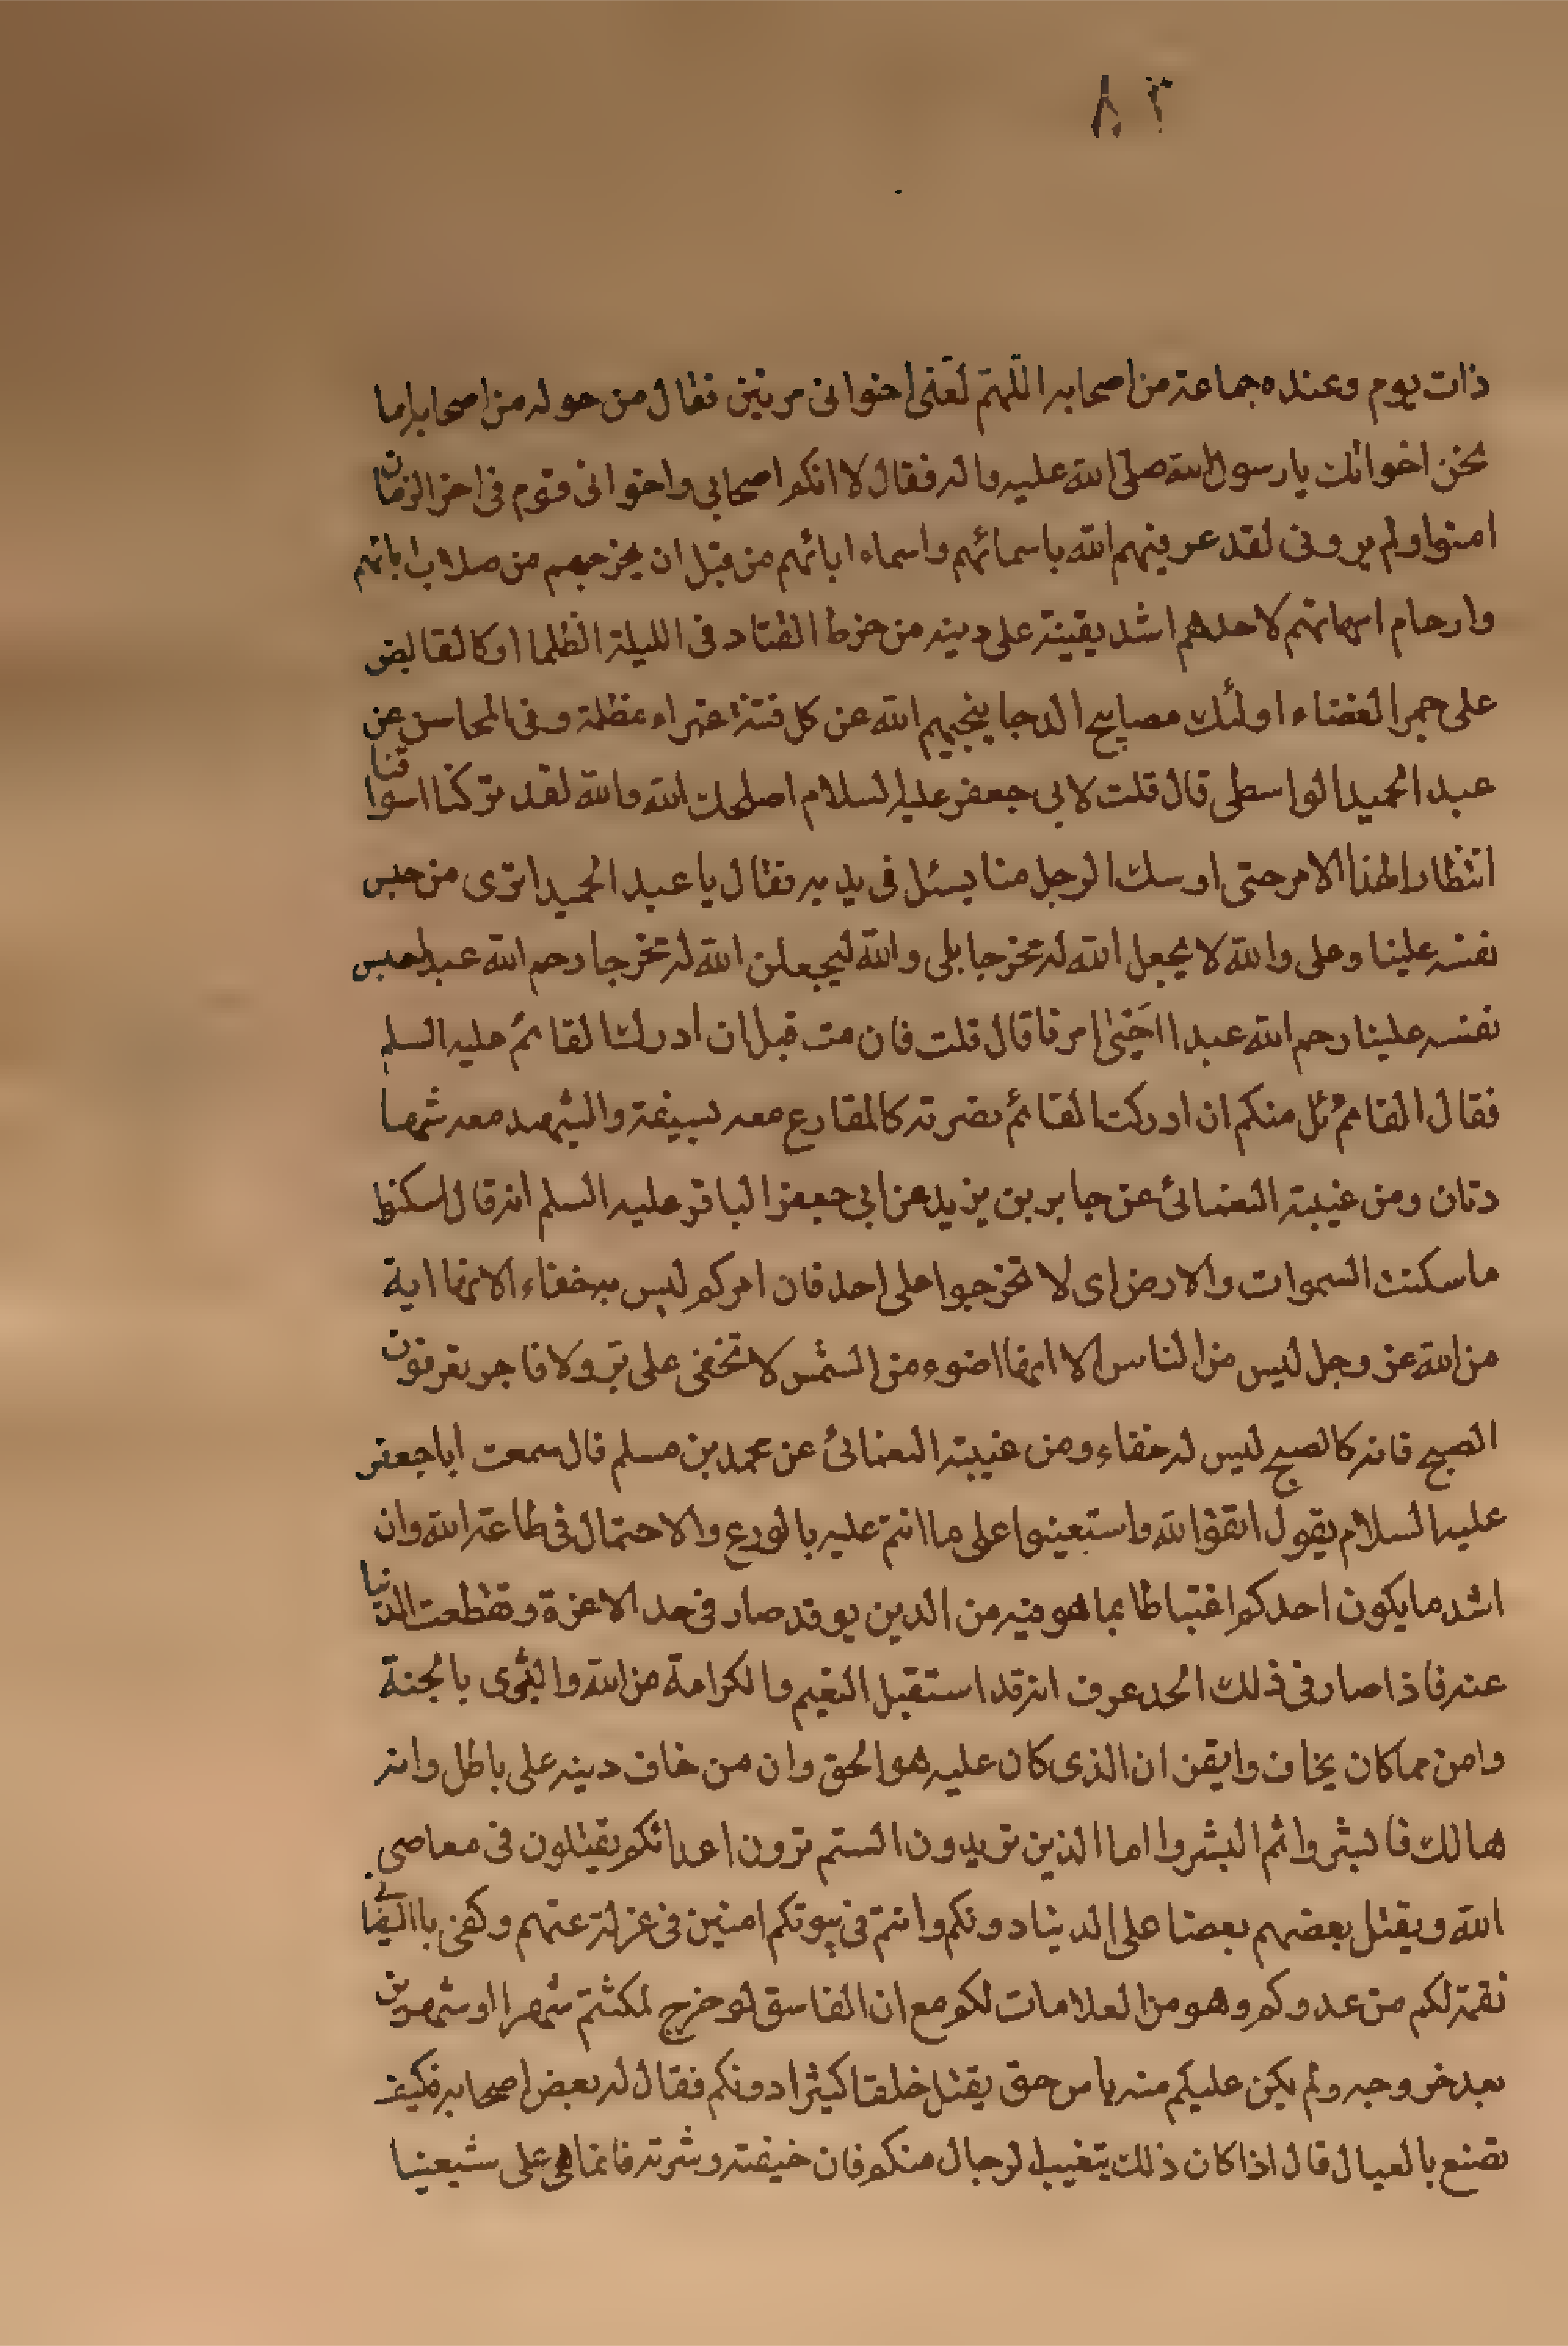 ٨٣
ذات يوم وعنده جماعة من اصحابه اللهم لقنى اخوانى مرتين فقال من حوله من اصحابه اما
نحن اخوانك يا رسول الله صلى الله عليه واله فقال لا انكم اصحابى واخوانى قوم فى اخر الزمان
امنوا ولم يرونى لقد عرفنيهم الله باسمائهم واسماء ابائهم من قبل ان يخرجهم من صلاب ابائهم
وارحام امهاتهم لاحدهم اشد يقينة على دينه من خرط القتاد فى الليلة الظلما او كالقابض
على جمر الغضاء اولئك مصابيح الدجا ينجيهم الله عن كل فتنة غبراء مظلمة وفى المحاسن عن
عبد الحميد الواسطى قال قلت لابى جعفر عليه السلام اصلحك الله والله لقد تركنا اسواقنا
انتظارا لهذا الامر حتى اوسك الرجل منا يسئل فى يديه فقال يا عبد الحميد اترى من حبس
نفسه علينا وعلى والله لا يجعل الله له مخرجا بلى والله ليجعلن الله له مخرجا رحم الله عبدا حبس
نفسه علينا رحم الله عبدا احيى امرنا قال قلت فان مت قبل ان ادرك القائم عليه السلم
فقال القائم منكم ان ادركت القائم نصرته كالمقارع معه بسيفه والشهيد معه شها
دتان ومن غيبة النعمانى عن جابر بن يزيد عن ابى جعفر الباقر عليه السلم انه قال اسكنوا
ما سكنت السموات والارض اى لا تخرجوا على احد فان امركم ليس به خفاء الا انها اية
من الله عز وجل ليس من الناس الا انها اضوء من الشمس لا تخفى على بر ولا فاجر يعرفون
الصبح فانه كالصبح ليس له خفاء ومن غيبة النعمانى عن محمد بن مسلم قال سمعت ابا جعفر
عليه السلام يقول اتقوا الله واستعينوا على ما انتم عليه بالورع والاحتمال فى طاعة الله وان
اشد ما يكون احدكم اغتباطا بما هو فيه من الدين يو قد صار فى حد الاعزة وقطعت الدنيا
عنه فاذا صار فى ذلك الحد عرف انه قد استقبل النعيم والكرامة من الله والبشرى بالجنة
وامن مما كان يخاف وايقن ان الذى كان عليه هو الحق وان من خاف دينه على باطل وانه
هالك فابشروا ثم البشروا اما الذين تريدون الستم ترون اعدائكم يقتلون فى معاصى
الله ويقتل بعضهم بعضا على الدينا دونكم وانتم فى بيوتكم امنين فى عزلة عنهم وكفى بالسفيانى
نقمة لكم من عدوكم وهو من العلامات لكم مع ان الفاسق لو خرج لمكثتم شهرا او شهرين
بعد خروجه ولم يكن عليكم منه باس حتى يقتل خلقا كثيرا دونكم فقال له بعض اصحابه فكيف
نصنع بالعيال قال اذا كان ذلك يتغيب الرجال منكم فان خيفته وشرته فانما هى على شيعتنا